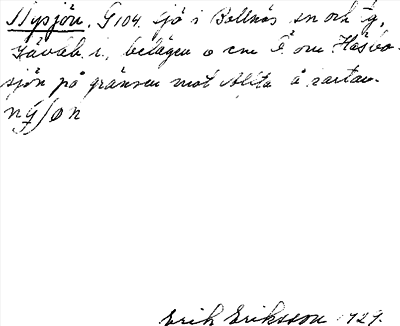 Nysjön. G 104. Sjö i Bollnäs sn och äg.
belägen o cm Ö om Häsbo-
sjön på gränsen mot Alfta å kartan.
nýʃøn
Erik Eriksson 1929.